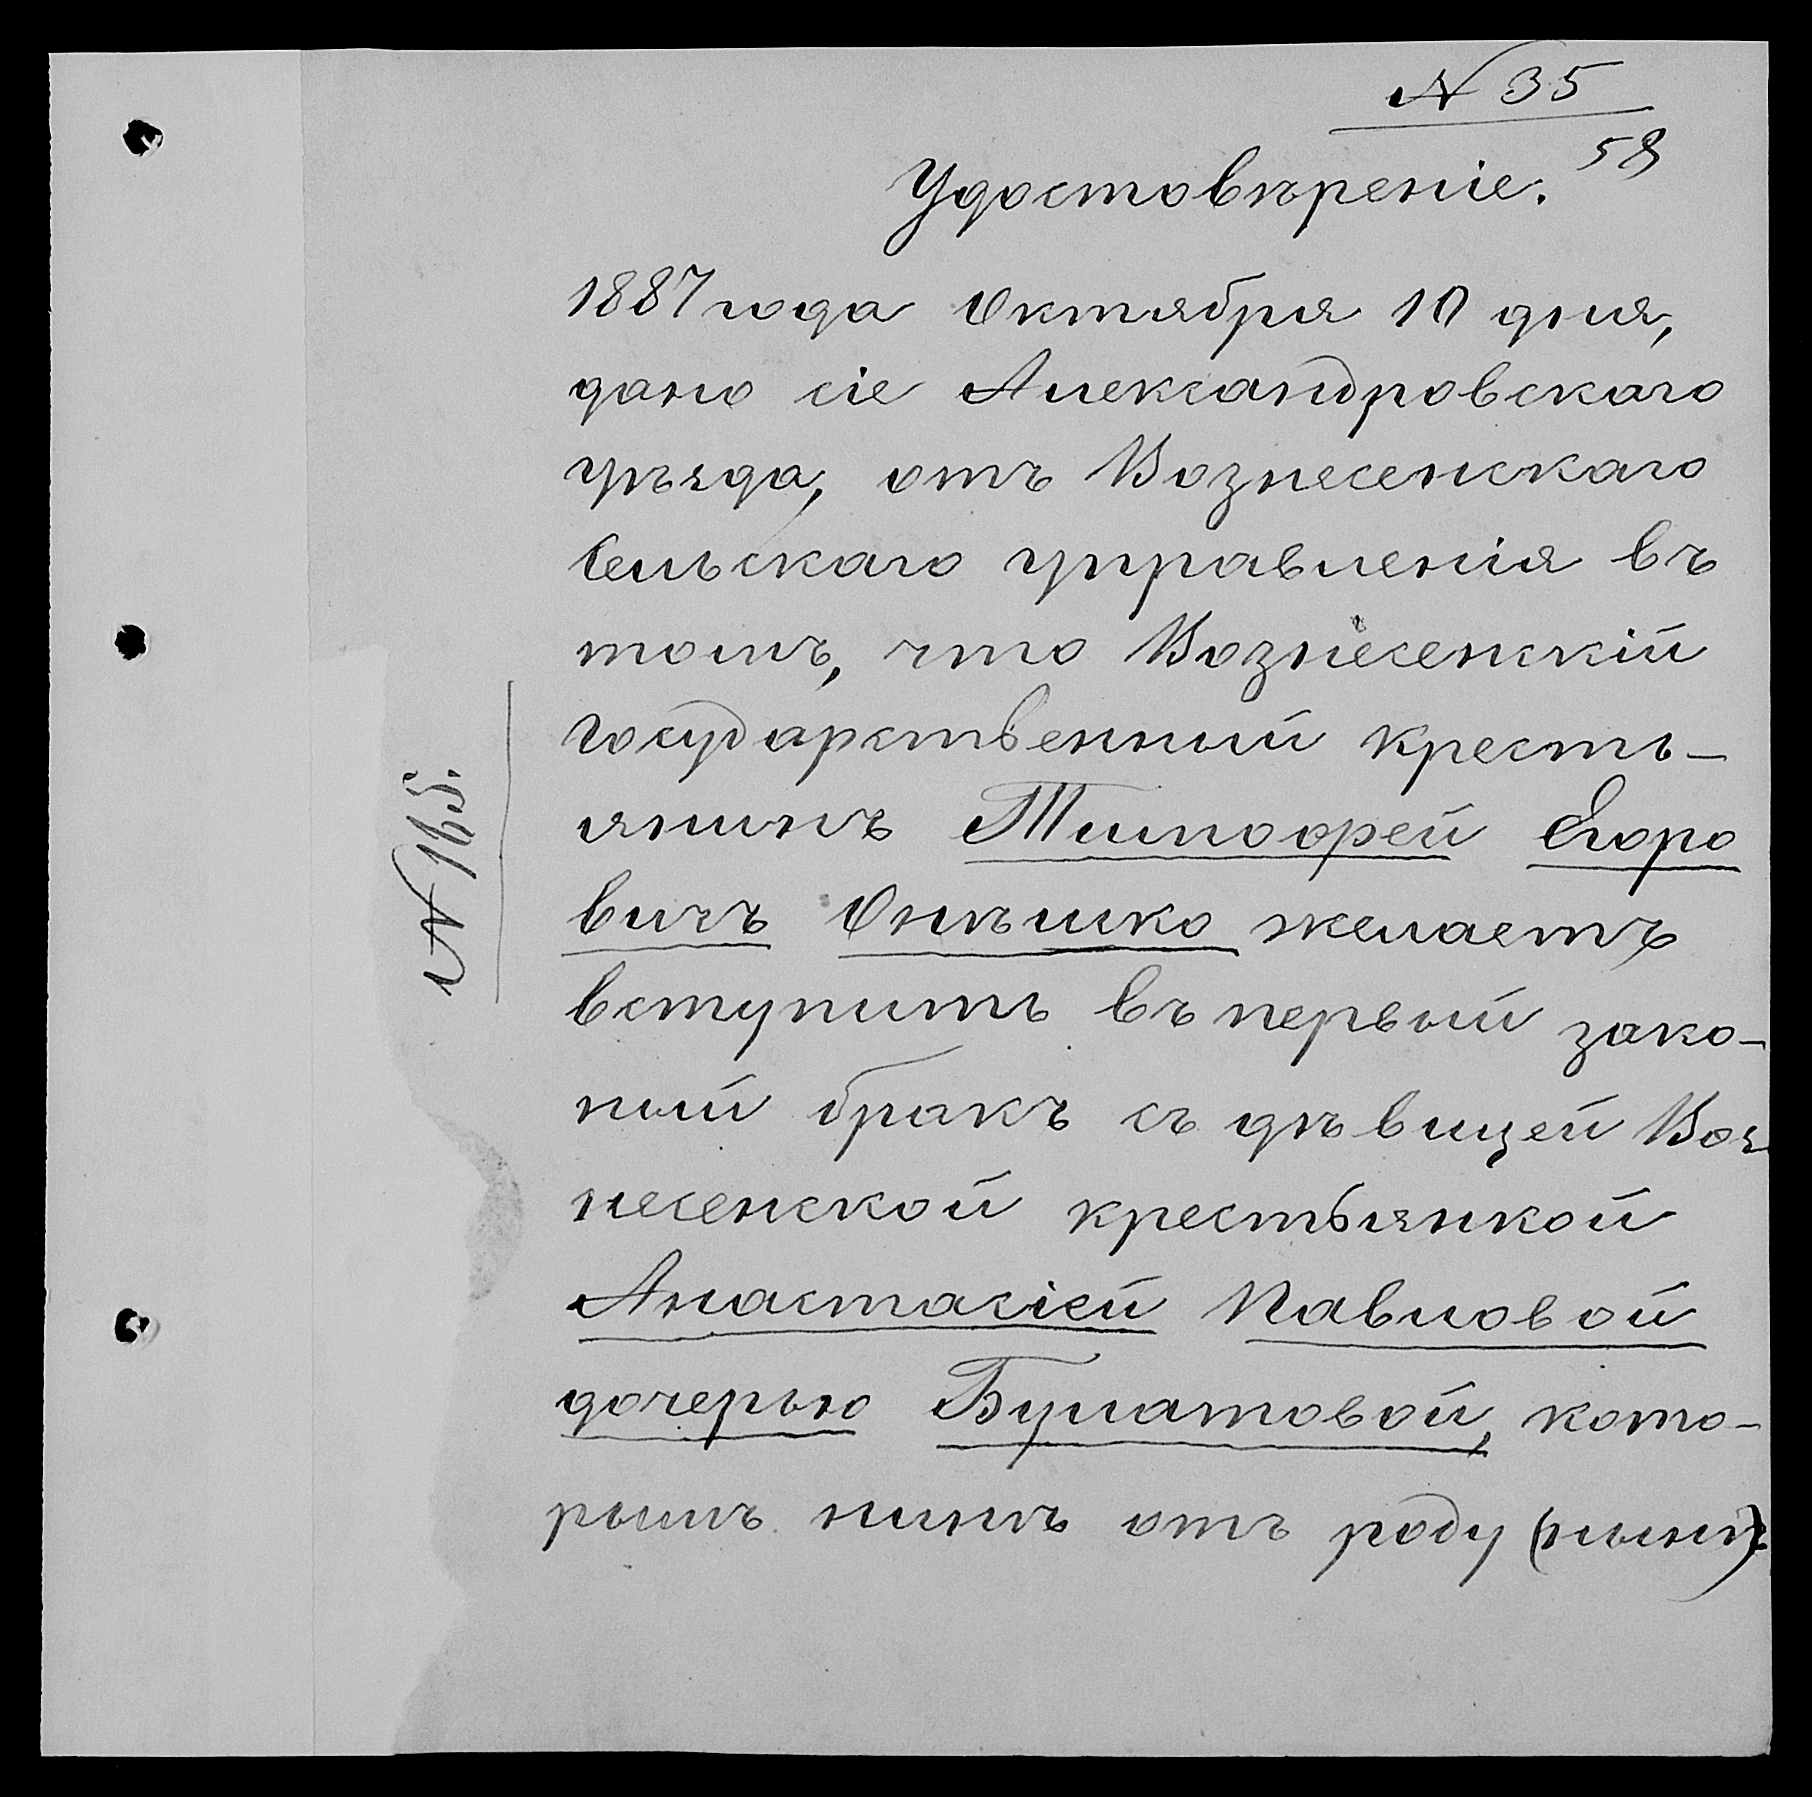 N 35
58
Удостовѣреніе.
1887 года Октября 10 дня,
дано сіе Александровскаго
уѣзда, отъ Вознесенскаго
Сельскаго управленія въ
томъ, что Вознесенскій
государственный кресть-
янинъ Тимофей Егоро
вичъ Онѣшко желаетъ
вступить въ первый зако-
ный бракъ съ дѣвицей Воз
несенской крестьянкой
Анастасіей Павловой
дочерью Булатовой, кото-
рымъ нинѣ отъ роду (нынѣ)
N 165.